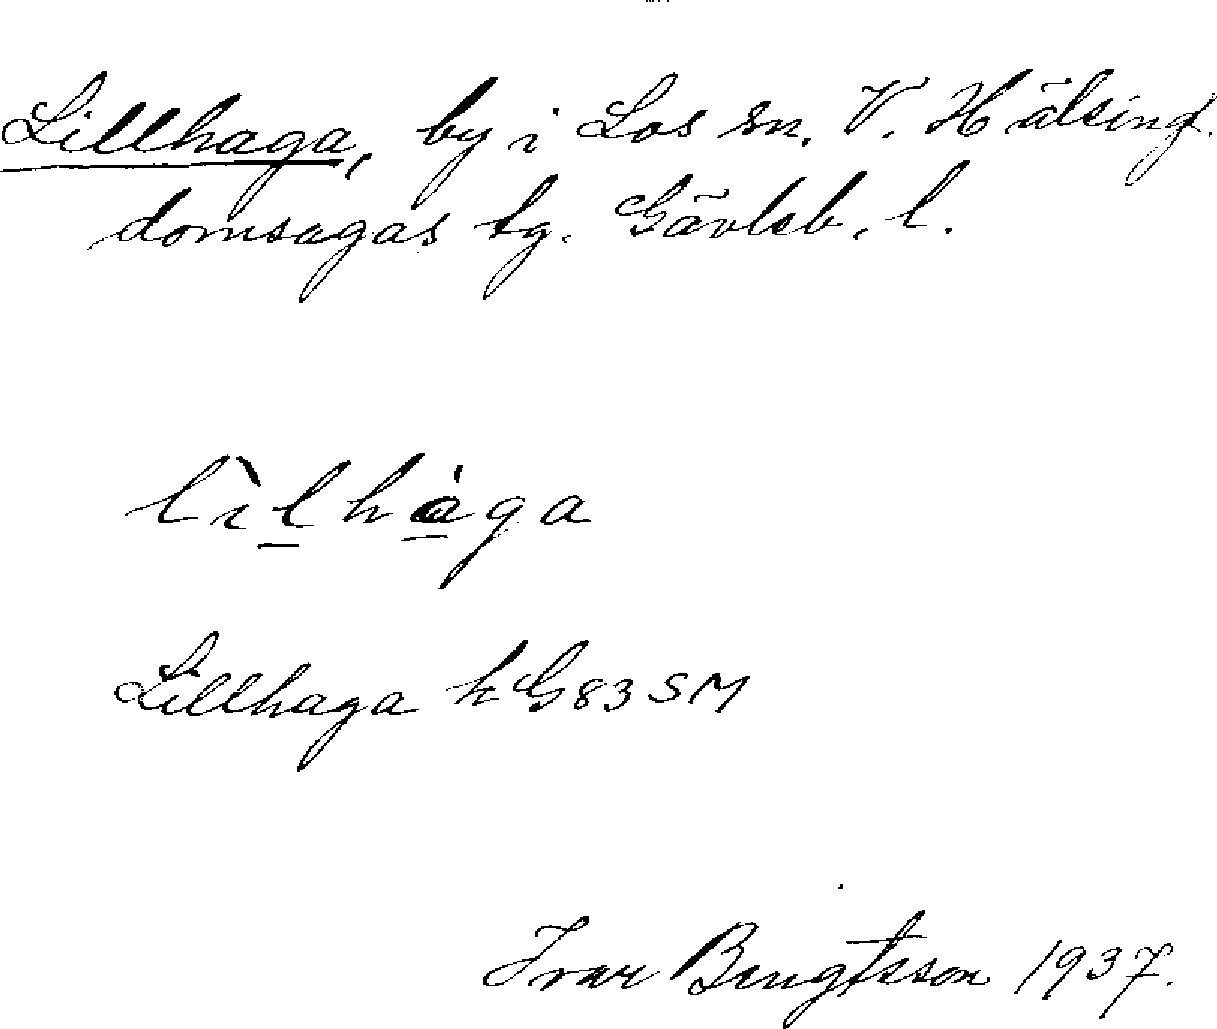 Lillhaga, by i Los sn. V. Hälsingl.
domsagas tg. Gävleb. l.
lìlhága
Lillhaga kG83SM
Ivar Bengtsson 1937.